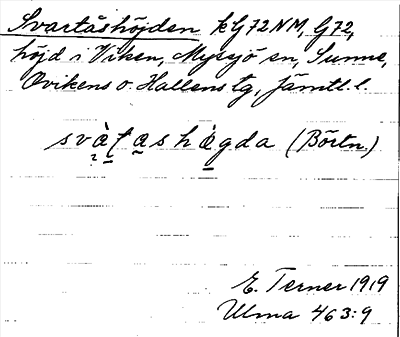 Svartåshöjden kG72NM, G72,
höjd i Viken, Myssjö sn, Sunne,
Ovikens o. Hallens tg, Jämtl. l.
svàt̩ashägda (Börtn.)
E. Terner 1919
Ulma 463:9